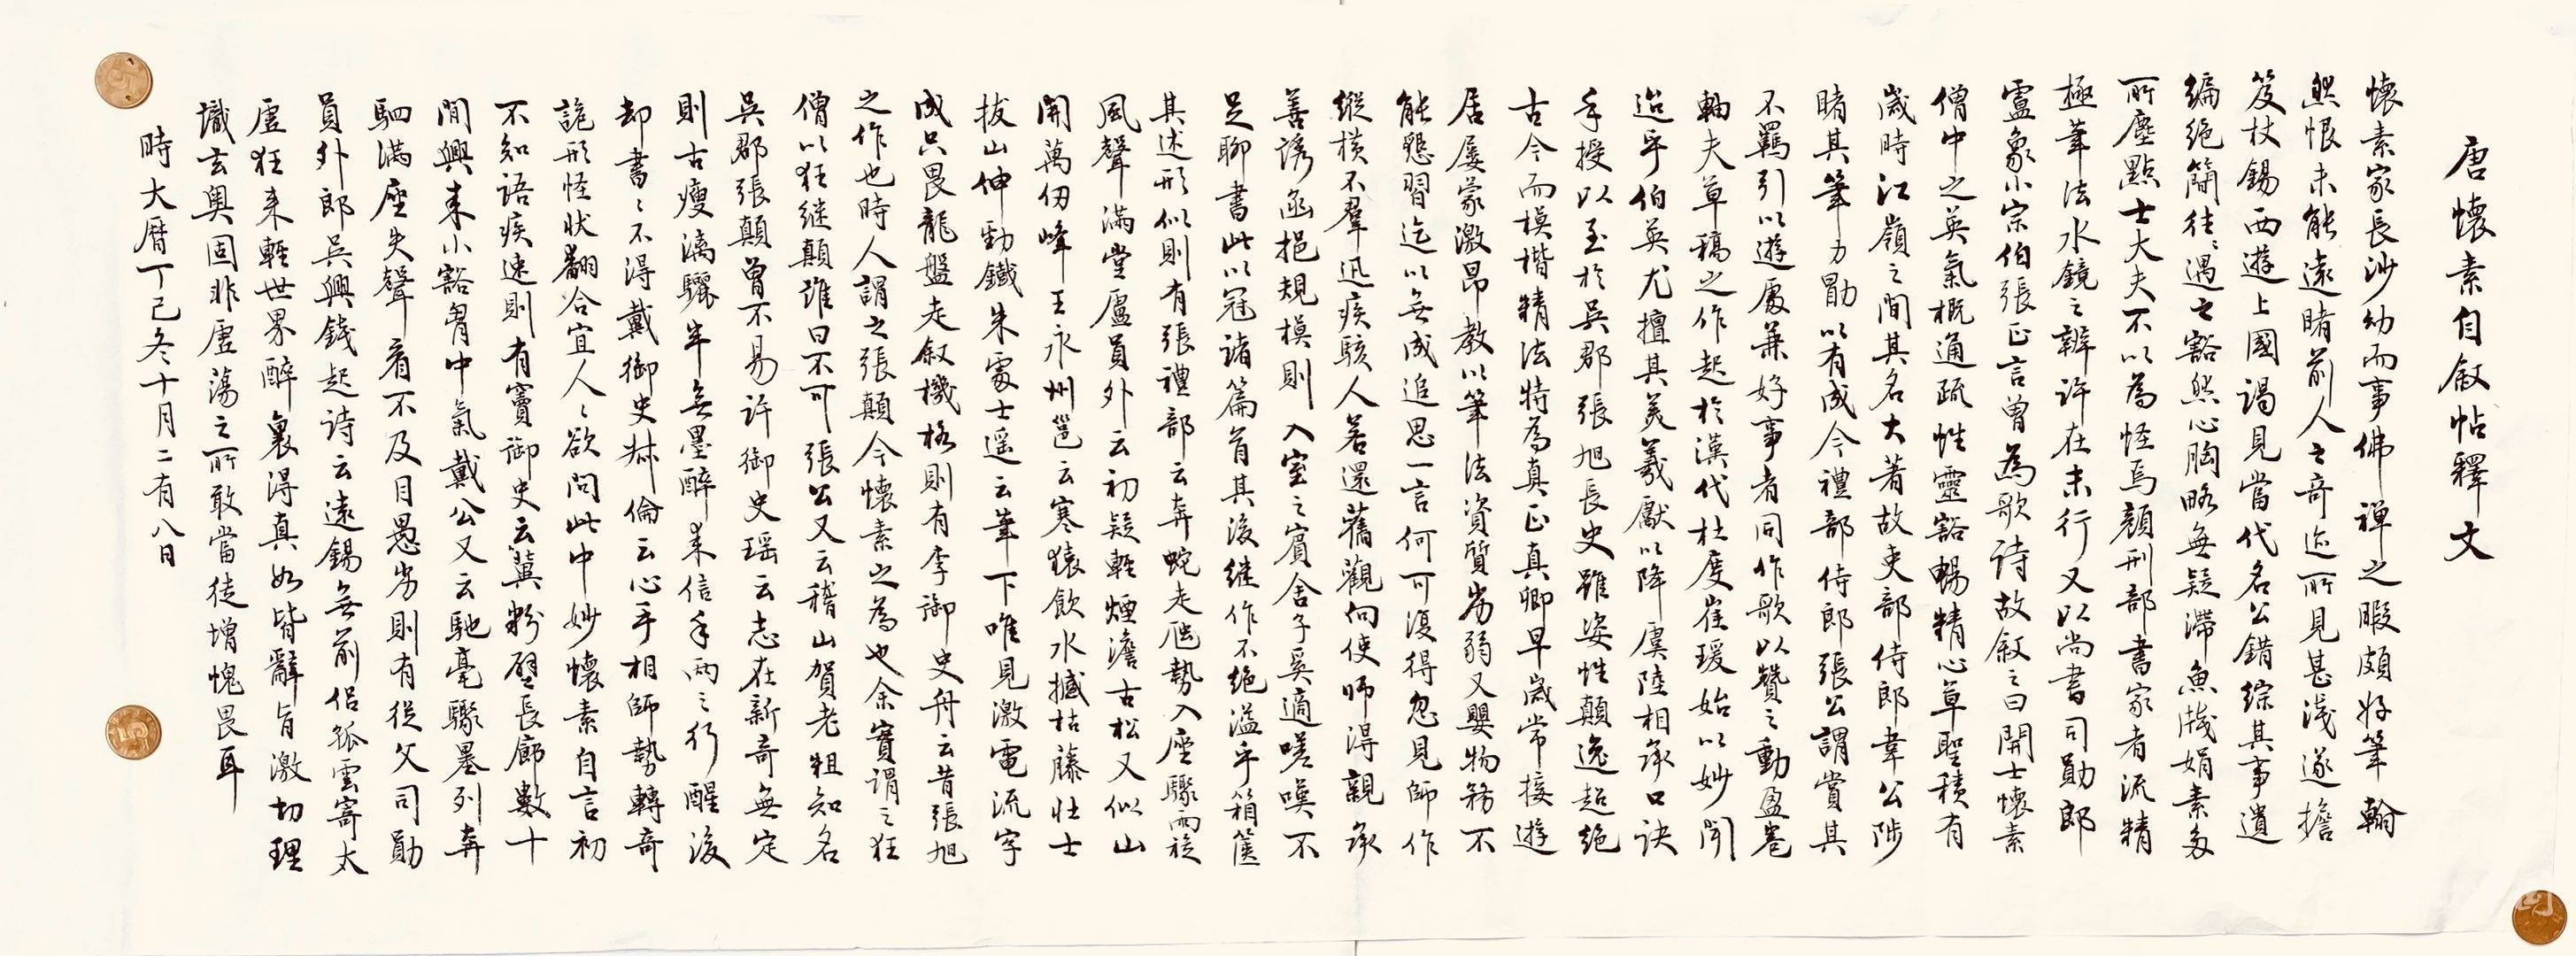 唐懷素自敘帖釋文
懷素家長沙幼而事佛禪之暇頗好筆翰
然恨未能遠睹前人之奇迹所見甚淺遂擔
笈杖錫西遊上國謁見當代名公錯綜其事遺
編絕簡往〻遇之豁然心胸略無疑滯魚牋絹素多
所塵點士大夫不以為怪焉顏刑部書家者流精
極筆法水鏡之辨許在末行又以尚書司勛郎
盧象小宗伯張正言曾為歌詩故敘之曰開士懷素
僧中之英氣概通疏性靈豁暢精心草聖積有
歲時江嶺之間其名大著故吏部侍郎韋公陟
睹其筆力勖以有成今禮部侍郎張公謂賞其
不羈引以遊處兼好事者同作歌以贊之動盈卷
軸夫草稿之作起於漢代杜度崔瑗始以妙聞
迨乎伯英尤擅其美羲獻以降虞陸相承口訣
手授以至於吳郡張旭長史雖姿性顛逸超絕
古今而模楷精法特為真正真卿早歲常接遊
居屢蒙激昂教以筆法資質劣弱又嬰物務不
能懇習迄以無成追思一言何可復得忽見師作
縱橫不羣迅疾駭人若還舊觀向使師得親承
善誘函挹規模則入室之賓舍子奚適嗟嘆不
足聊書此以冠諸篇首其後繼作不絕溢乎箱篋
其述形似則有張禮部云奔蛇走虺勢入座驟雨旋
風聲滿堂盧員外云初疑輕煙澹古松又似山
開萬仞峰王永州邕云寒猿飲水撼枯藤壯士
拔山伸勁鐵朱處士遙云筆下唯見激電流字
成只畏龍盤走敘機格則有李御史舟云昔張旭
之作也時人謂之張顛今懷素之為也余實謂之狂
僧以狂繼顛誰曰不可張公又云稽山賀老粗知名
吳郡張顛曾不易許御史瑤云志在新奇無定
則古瘦漓驪半無墨醉來信手兩三行醒後
却書〻不得戴御史叔倫云心手相師勢轉奇
詭形怪狀翻合宜人〻欲問此中妙懷素自言初
不知語疾速則有竇御史云冀粉壁長廊數十
間興來小豁胷中氣戴公又云馳毫驟墨列奔
駟滿座失聲看不及目愚劣則有從父司勛
員外郎吳興錢起詩云遠錫無前侶孤雲寄太
虛狂來輕世界醉裏得真如皆辭旨激切理
識玄奧固非虛蕩之所敢當徒增愧畏耳
時大曆丁巳冬十月二有八日